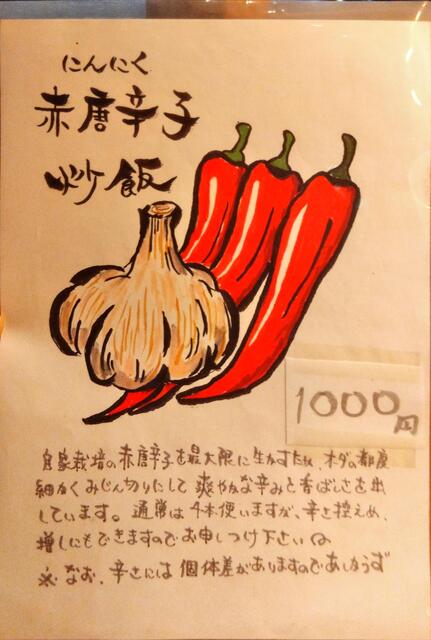 にんにく
赤唐辛子
炒飯
1000円
自家栽培の赤唐辛子を最大限に生かすため、オダの都度
細かくみじん切りにして爽やかな辛みと香ばしさを出
しています。通常は4本使いますが、辛さ控えめ、
増しにもできますのでお申しつけ下さい
※なお、辛さには個体差がありますのであしからず